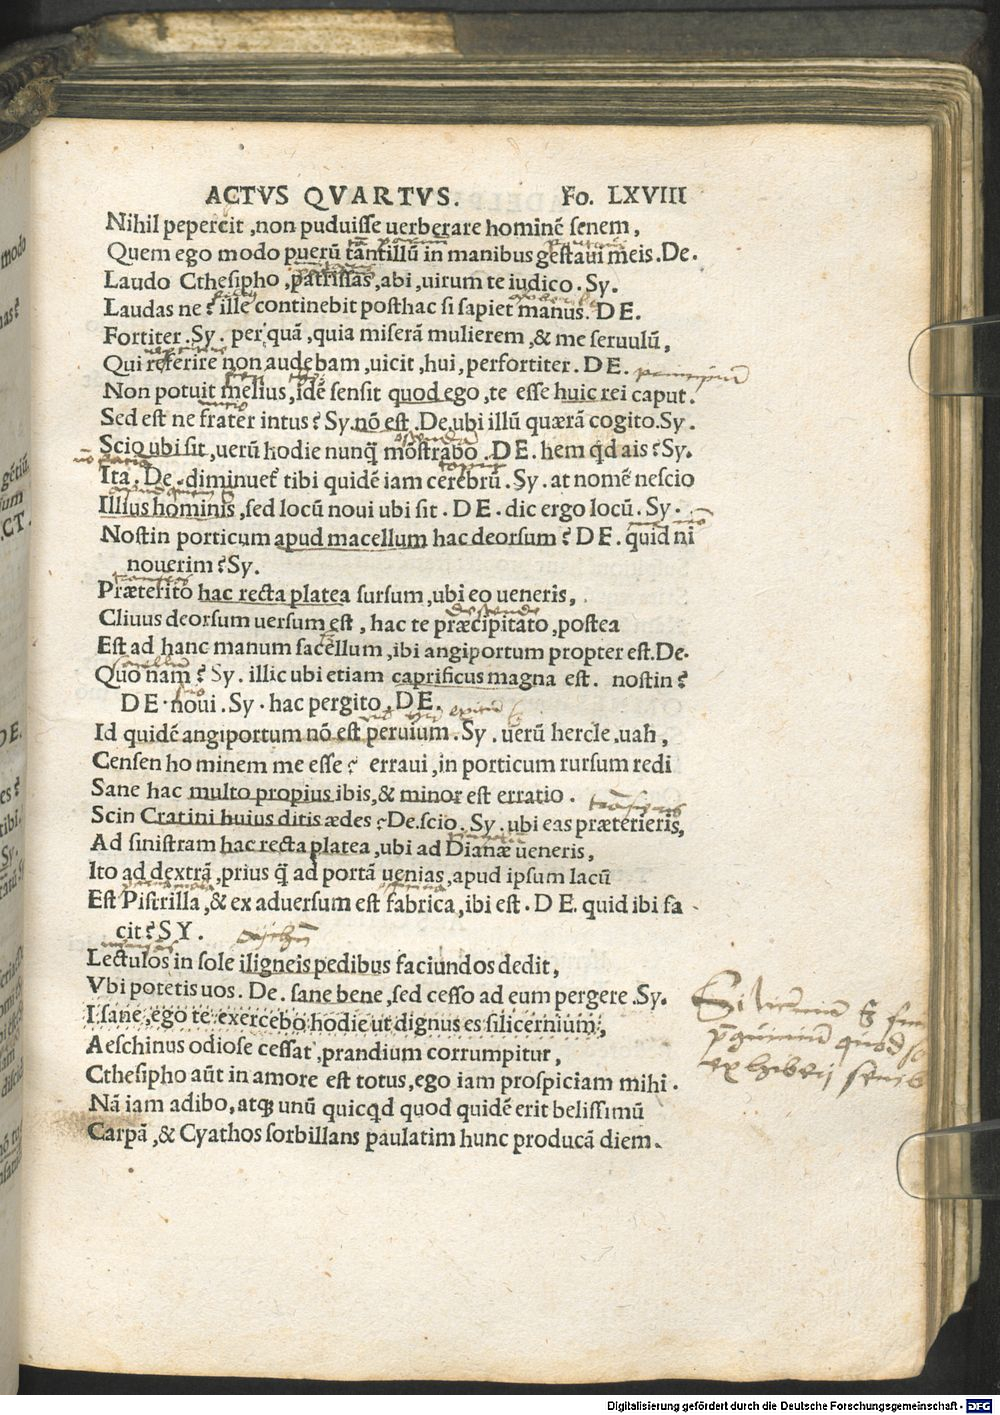 ACTVS QVARTVS. Fo. LXVIII
Nihil pepercit, non puduisse uerberare hominē senem,
Quem ego modo puerū tantillū in manibus gestaui meis. De.
Laudo Cthesipho, patrissas, abi, uirum te iudico. Sy.
Laudas ne? ille continebit posthac si sapiet manus. DE.
Fortiter. Sy. per quā, quia miserā mulierem, & me seruulū,
Qui referire non audebam, uicit, hui, perfortiter. DE.
Non potuit melius, idē sensit quod ego, te esse huic rei caput.
Sed est ne frater intus? Sy. nō est. De. ubi illū quærā cogito. Sy.
Scio ubi sit, uerū hodie nunq̄ mōstrabo. DE. hem qd ais? Sy.
Ita. De. diminuet tibi quidē iam cerebrū. Sy. at nomē nescio
Illius hominis, sed locū noui ubi sit. DE. dic ergo locū. Sy.
Nostin porticum apud macellum hac deorsum? DE. quid ni
nouerim? Sy.
Præterito hac recta platea sursum, ubi eo ueneris,
Cliuus deorsum uersum est, hac te præcipitato, postea
Est ad hanc manum sacellum, ibi angiportum propter est. De.
Quo nam? Sy. illic ubi etiam caprificus magna est. nostin?
DE. noui. Sy. hac pergito. DE.
Id quidē angiportum nō est peruium. Sy. uerū hercle, uah,
Censen ho minem me esse? erraui, in porticum rursum redi
Sane hac multo propius ibis, & minor est erratio.
transieris
Scin Cratini huius ditis ædes? De. scio. Sy. ubi eas præterieris,
Ad sinistram hac recta platea, ubi ad Dianæ ueneris,
Ito ad dextrā, prius q̄ ad portā uenias, apud ipsum lacū
Est Pistrilla, & ex aduersum est fabrica, ibi est. DE. quid ibi fa
cit? SY.
Lectulos in sole iligneis pedibus faciundos dedit,
Vbi potetis uos. De. sane bene, sed cesso ad eum pergere. Sy.
I sane, ego te exercebo hodie ut dignus es silicernium,
Aeschinus odiose cessat, prandium corrumpitur,
Cthesipho aūt in amore est totus, ego iam prospiciam mihi.
Nā iam adibo, atq; unū quicqd quod quidē erit belissimū
Carpā, & Cyathos sorbillans paulatim hunc producā diem.
Digitalisierung gefördert durch die Deutsche Forschungsgemeinschaft - DFG